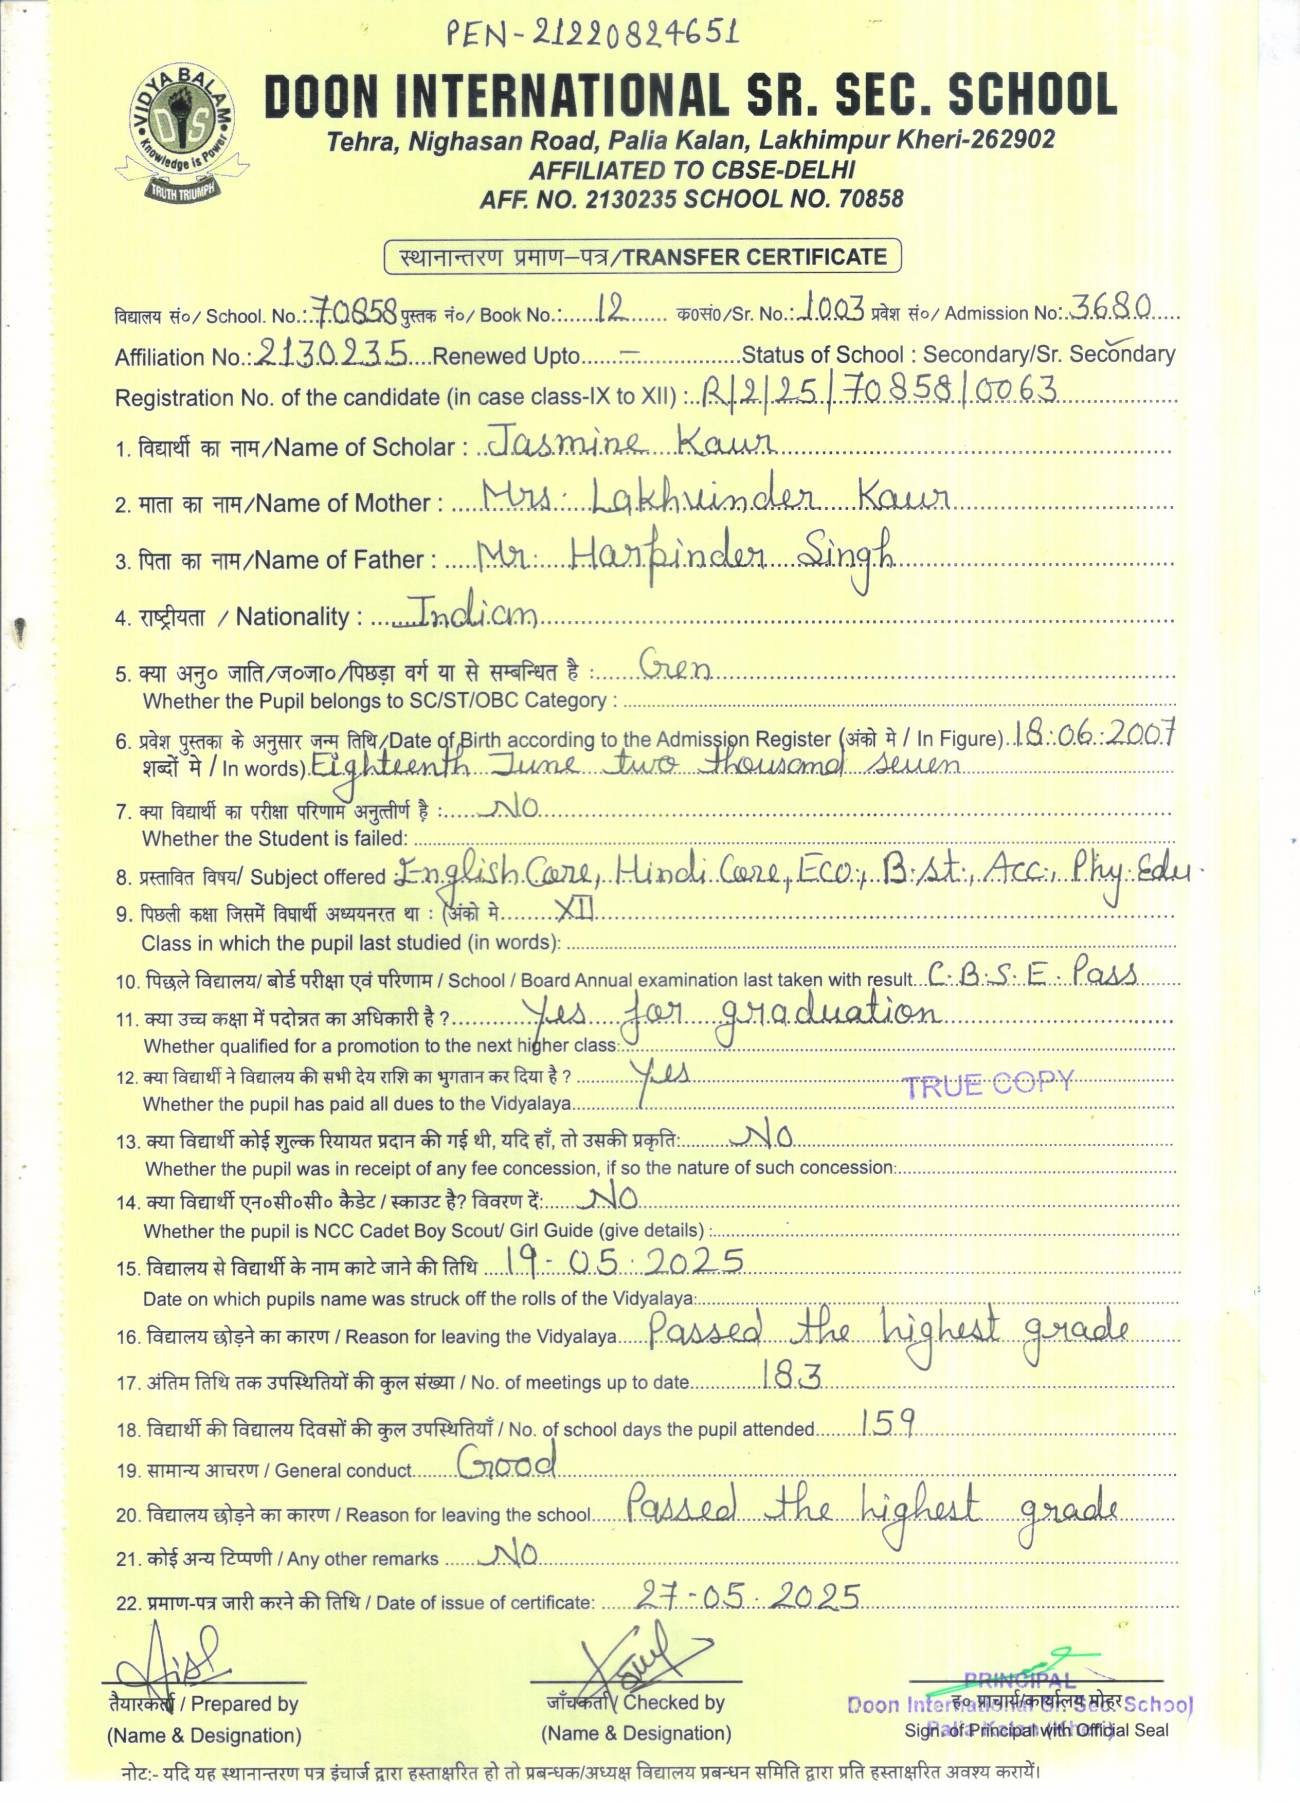 PEN-21220824651
VIDYA BALAM
DIS
Knowledge is Power
TRUTH TRIUMPH
DOON INTERNATIONAL SR. SEC. SCHOOL
Tehra, Nighasan Road, Palia Kalan, Lakhimpur Kheri-262902
AFFILIATED TO CBSE-DELHI
AFF. NO. 2130235 SCHOOL NO. 70858
स्थानान्तरण प्रमाण–पत्र/TRANSFER CERTIFICATE
विद्यालय सं०/ School. No.: 70858 पुस्तक नं०/ Book No.: 12 क०सं०/Sr. No.: 1003 प्रवेश सं०/ Admission No: 3680
Affiliation No.: 2130235 Renewed Upto – Status of School : Secondary/Sr. Secondary
Registration No. of the candidate (in case class-IX to XII) : R/2/25/70858/0063
1. विद्यार्थी का नाम/Name of Scholar : Jasmine Kaur
2. माता का नाम/Name of Mother : Mrs. Lakhvinder Kaur
3. पिता का नाम/Name of Father : Mr. Harpinder Singh
4. राष्ट्रीयता / Nationality : Indian
5. क्या अनु० जाति/ज०जा०/पिछड़ा वर्ग या से सम्बन्धित है : Gen
Whether the Pupil belongs to SC/ST/OBC Category :
6. प्रवेश पुस्तका के अनुसार जन्म तिथि/Date of Birth according to the Admission Register (अंको मे / In Figure) 18.06.2007
शब्दों मे / In words) Eighteenth June two thousand seven
7. क्या विद्यार्थी का परीक्षा परिणाम अनुत्तीर्ण है : NO
Whether the Student is failed:
8. प्रस्तावित विषय/ Subject offered : English Core, Hindi Core, Eco., B.st., Acc., Phy. Edu.
9. पिछली कक्षा जिसमें विघार्थी अध्ययनरत था : (अंको मे XII
Class in which the pupil last studied (in words):
10. पिछले विद्यालय/ बोर्ड परीक्षा एवं परिणाम / School / Board Annual examination last taken with result C.B.S.E. Pass
11. क्या उच्च कक्षा में पदोन्नत का अधिकारी है ? Yes for graduation
Whether qualified for a promotion to the next higher class:
12. क्या विद्यार्थी ने विद्यालय की सभी देय राशि का भुगतान कर दिया है ? Yes
TRUE COPY
Whether the pupil has paid all dues to the Vidyalaya
13. क्या विद्यार्थी कोई शुल्क रियायत प्रदान की गई थी, यदि हाँ, तो उसकी प्रकृति: NO
Whether the pupil was in receipt of any fee concession, if so the nature of such concession:
14. क्या विद्यार्थी एन०सी०सी० कैडेट / स्काउट है? विवरण दें: NO
Whether the pupil is NCC Cadet Boy Scout/ Girl Guide (give details) :
15. विद्यालय से विद्यार्थी के नाम काटे जाने की तिथि 19-05.2025
Date on which pupils name was struck off the rolls of the Vidyalaya:
16. विद्यालय छोड़ने का कारण / Reason for leaving the Vidyalaya Passed the highest grade
17. अंतिम तिथि तक उपस्थितियों की कुल संख्या / No. of meetings up to date 183
18. विद्यार्थी की विद्यालय दिवसों की कुल उपस्थितियाँ / No. of school days the pupil attended 159
19. सामान्य आचरण / General conduct Good
20. विद्यालय छोड़ने का कारण / Reason for leaving the school Passed the highest grade
21. कोई अन्य टिप्पणी / Any other remarks NO
22. प्रमाण-पत्र जारी करने की तिथि / Date of issue of certificate: 27-05.2025
PRINCIPAL
तैयारकर्ता / Prepared by जाँचकर्ता/ Checked by ह० प्राचार्य/कार्यालय मोहर
Doon International Sr. Sec. School
(Name & Designation) (Name & Designation) Sign. of Principal with Official Seal
Palia Kalan (Kheri)
नोट:- यदि यह स्थानान्तरण पत्र इंचार्ज द्वारा हस्ताक्षरित हो तो प्रबन्धक/अध्यक्ष विद्यालय प्रबन्धन समिति द्वारा प्रति हस्ताक्षरित अवश्य करायें।